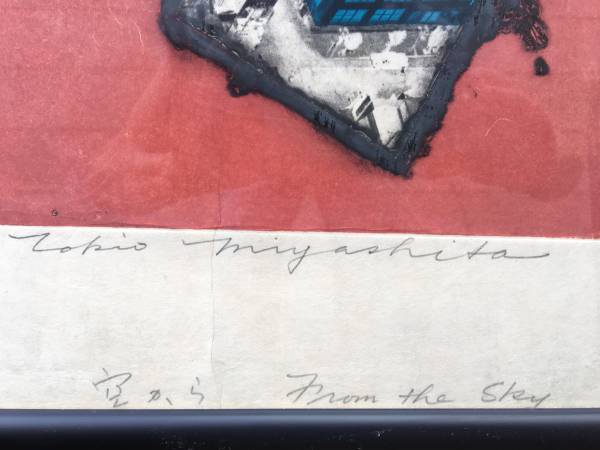 Tokio Miyashita
空から From the Sky